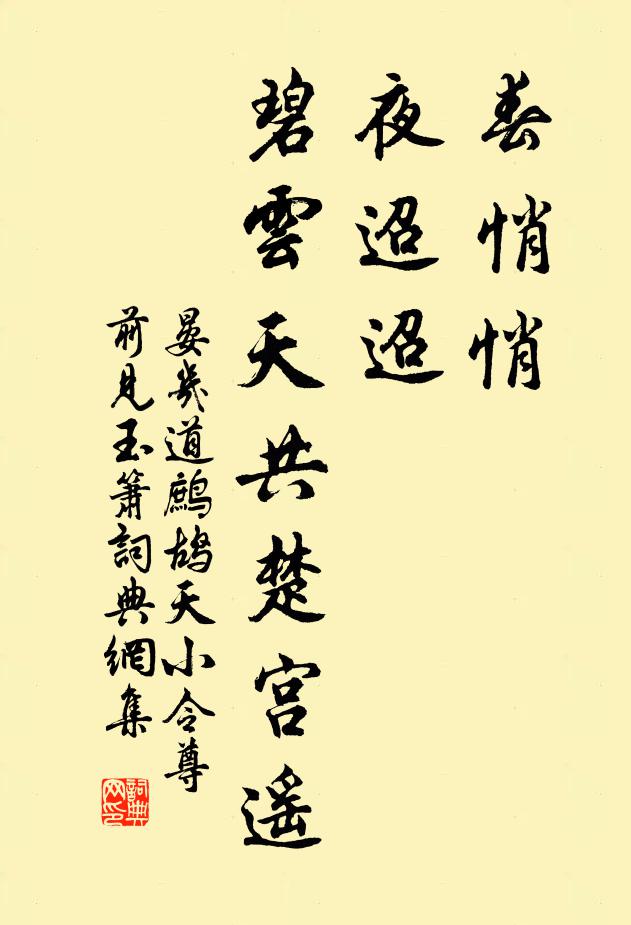 春悄悄
夜迢迢
碧雲天共楚宮遥
晏幾道鷓鴣天小令尊
前見玉簫詞典網集
詞典
网印